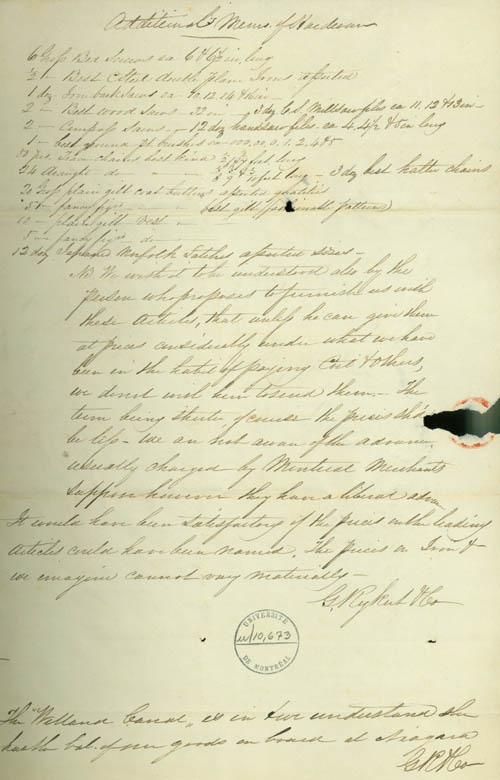 Additional Memo. of Hardware
6 Gross Bed Screws ea 6 & 6½ in long
Best C Steel double Plane Irons assorted
1 doz Iron buck saws ea 10. 12. 14 & 16 in
2 - Best wood saws - 32 in - 3 doz C.S. Millsaw files ea 11. 12 & 13 in -
2 - Compass Saws - 12 doz handsaw files ea 4, 4½ & 5 in long
1 - best ground pt. brushes ea 000, 00, 0, 1, 2, 4 & 5
10 prs. Trace chains best kind feet long
24 straight do - feet long - 3 doz best halter chains
20 Gross plain gilt coat buttons assorted qualities
5 - fancy figd - best gilt fashionable pattern
10 - plain gilt Vest -
5 - fancy figd do -
12 doz Japaned Norfolk Latches assorted sizes -
NB We wish it to be understood also by the
person who proposes to furnish us with
these Articles, that unless he can give them
at prices considerably under what we have
been in the habit of paying & others,
we do not wish him to send them. - The
term being shorter of course the prices shd
be less - We are not aware of the advance
usually charged by Montreal Merchants
suppose however they have a liberal advan
It would have been satisfactory if the prices on the leading
Articles could have been named. The prices on Iron &c
we imagine cannot vary materially -
G. Rykert & Co
UNIVERSITÉ
u/10,673
DE MONTRÉAL
The "Welland Canal" is in & we understand she
hath bal. of our goods on board at Niagara
G R & Co